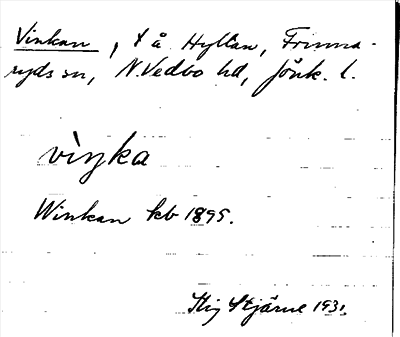 Vinkan, t å Hyltan, Frinna-
ryds sn, N. Vedbo hd, Jönk. l.
vìŋka
Winkan kb 1895.
Stig Stjärne 1931.